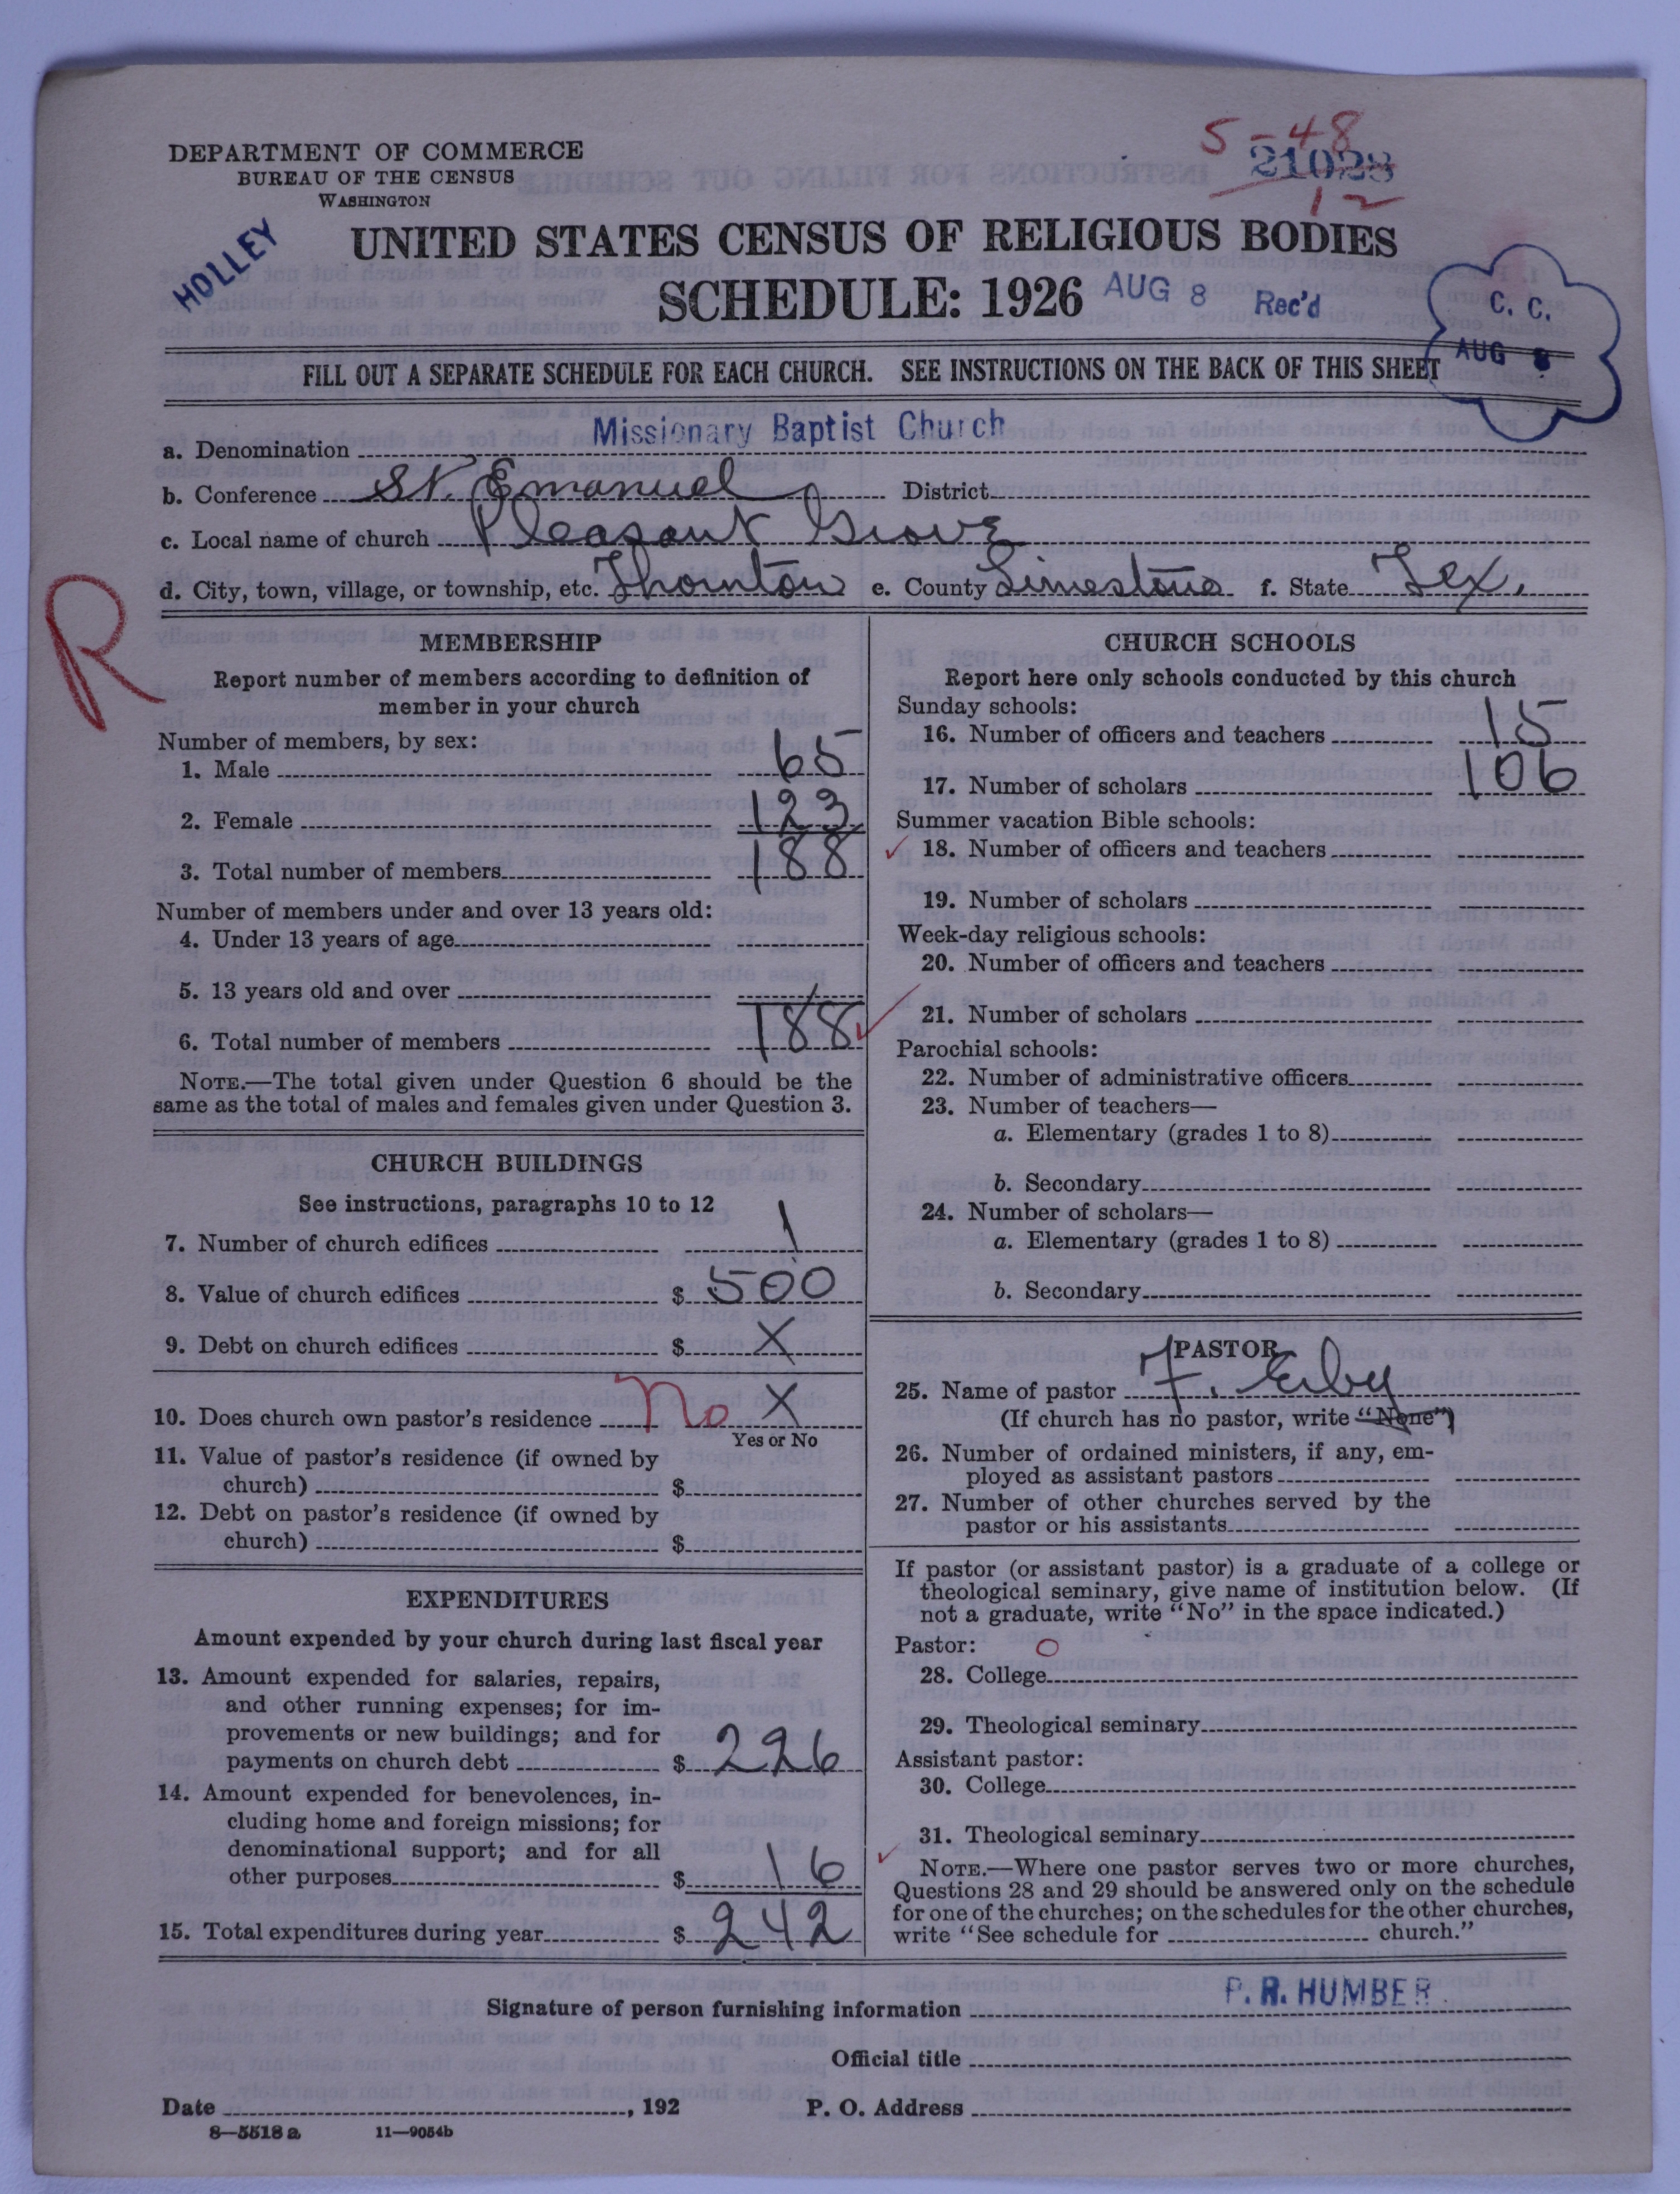 DEPARTMENT OF COMMERCE
BUREAU OF THE CENSUS
WASHINGTON
5-48
21028
12
HOLLEY
UNITED STATES CENSUS OF RELIGIOUS BODIES
SCHEDULE: 1926 AUG 8 Rec'd
C. C.
AUG 8
FILL OUT A SEPARATE SCHEDULE FOR EACH CHURCH. SEE INSTRUCTIONS ON THE BACK OF THIS SHEET
a. Denomination Missionary Baptist Church
b. Conference St. Emanuel District
c. Local name of church Pleasant Grove
d. City, town, village, or township, etc. Thornton e. County Limestone f. State Tex.
R
MEMBERSHIP
Report number of members according to definition of
member in your church
Number of members, by sex:
1. Male 65
2. Female 123
3. Total number of members 188
Number of members under and over 13 years old:
4. Under 13 years of age
5. 13 years old and over
6. Total number of members 188
NOTE.—The total given under Question 6 should be the
same as the total of males and females given under Question 3.
CHURCH BUILDINGS
See instructions, paragraphs 10 to 12
7. Number of church edifices 1
8. Value of church edifices $ 500
9. Debt on church edifices $ X
10. Does church own pastor's residence No X
Yes or No
11. Value of pastor's residence (if owned by
church) $
12. Debt on pastor's residence (if owned by
church) $
EXPENDITURES
Amount expended by your church during last fiscal year
13. Amount expended for salaries, repairs,
and other running expenses; for im-
provements or new buildings; and for
payments on church debt $ 226
14. Amount expended for benevolences, in-
cluding home and foreign missions; for
denominational support; and for all
other purposes $ 16
15. Total expenditures during year $ 242
CHURCH SCHOOLS
Report here only schools conducted by this church
Sunday schools:
16. Number of officers and teachers 15
17. Number of scholars 106
Summer vacation Bible schools:
18. Number of officers and teachers
19. Number of scholars
Week-day religious schools:
20. Number of officers and teachers
21. Number of scholars
Parochial schools:
22. Number of administrative officers
23. Number of teachers—
a. Elementary (grades 1 to 8)
b. Secondary
24. Number of scholars—
a. Elementary (grades 1 to 8)
b. Secondary
PASTOR
25. Name of pastor F. Erby
(If church has no pastor, write "None")
26. Number of ordained ministers, if any, em-
ployed as assistant pastors
27. Number of other churches served by the
pastor or his assistants
If pastor (or assistant pastor) is a graduate of a college or
theological seminary, give name of institution below. (If
not a graduate, write "No" in the space indicated.)
Pastor: O
28. College
29. Theological seminary
Assistant pastor:
30. College
31. Theological seminary
NOTE.—Where one pastor serves two or more churches,
Questions 28 and 29 should be answered only on the schedule
for one of the churches; on the schedules for the other churches,
write "See schedule for church."
Signature of person furnishing information P. R. HUMBER
Official title
Date , 192 P. O. Address
8—5518 a 11—9054b